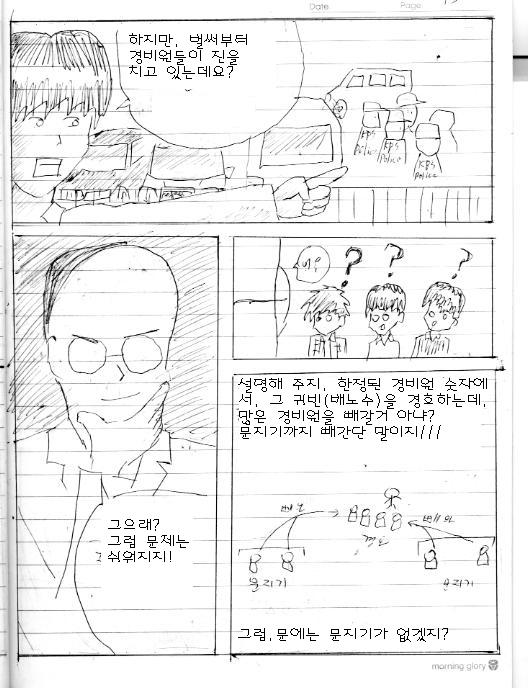 Date
Page
하지만, 벌써부터
경비원들이 진을
치고 있는데요?
KBS
Police
KBS
Police
KBS
Police
그으래?
그럼 문제는
쉬워지지!
설명해 주지, 한정된 경비원 숫자에
서, 그 귀빈(배노수)을 경호하는데,
많은 경비원을 빼갈거 아냐?
문지기까지 빼간단 말이지///
문지기
문지기
그럼, 문에는 문지기가 없겠지?
morning glory